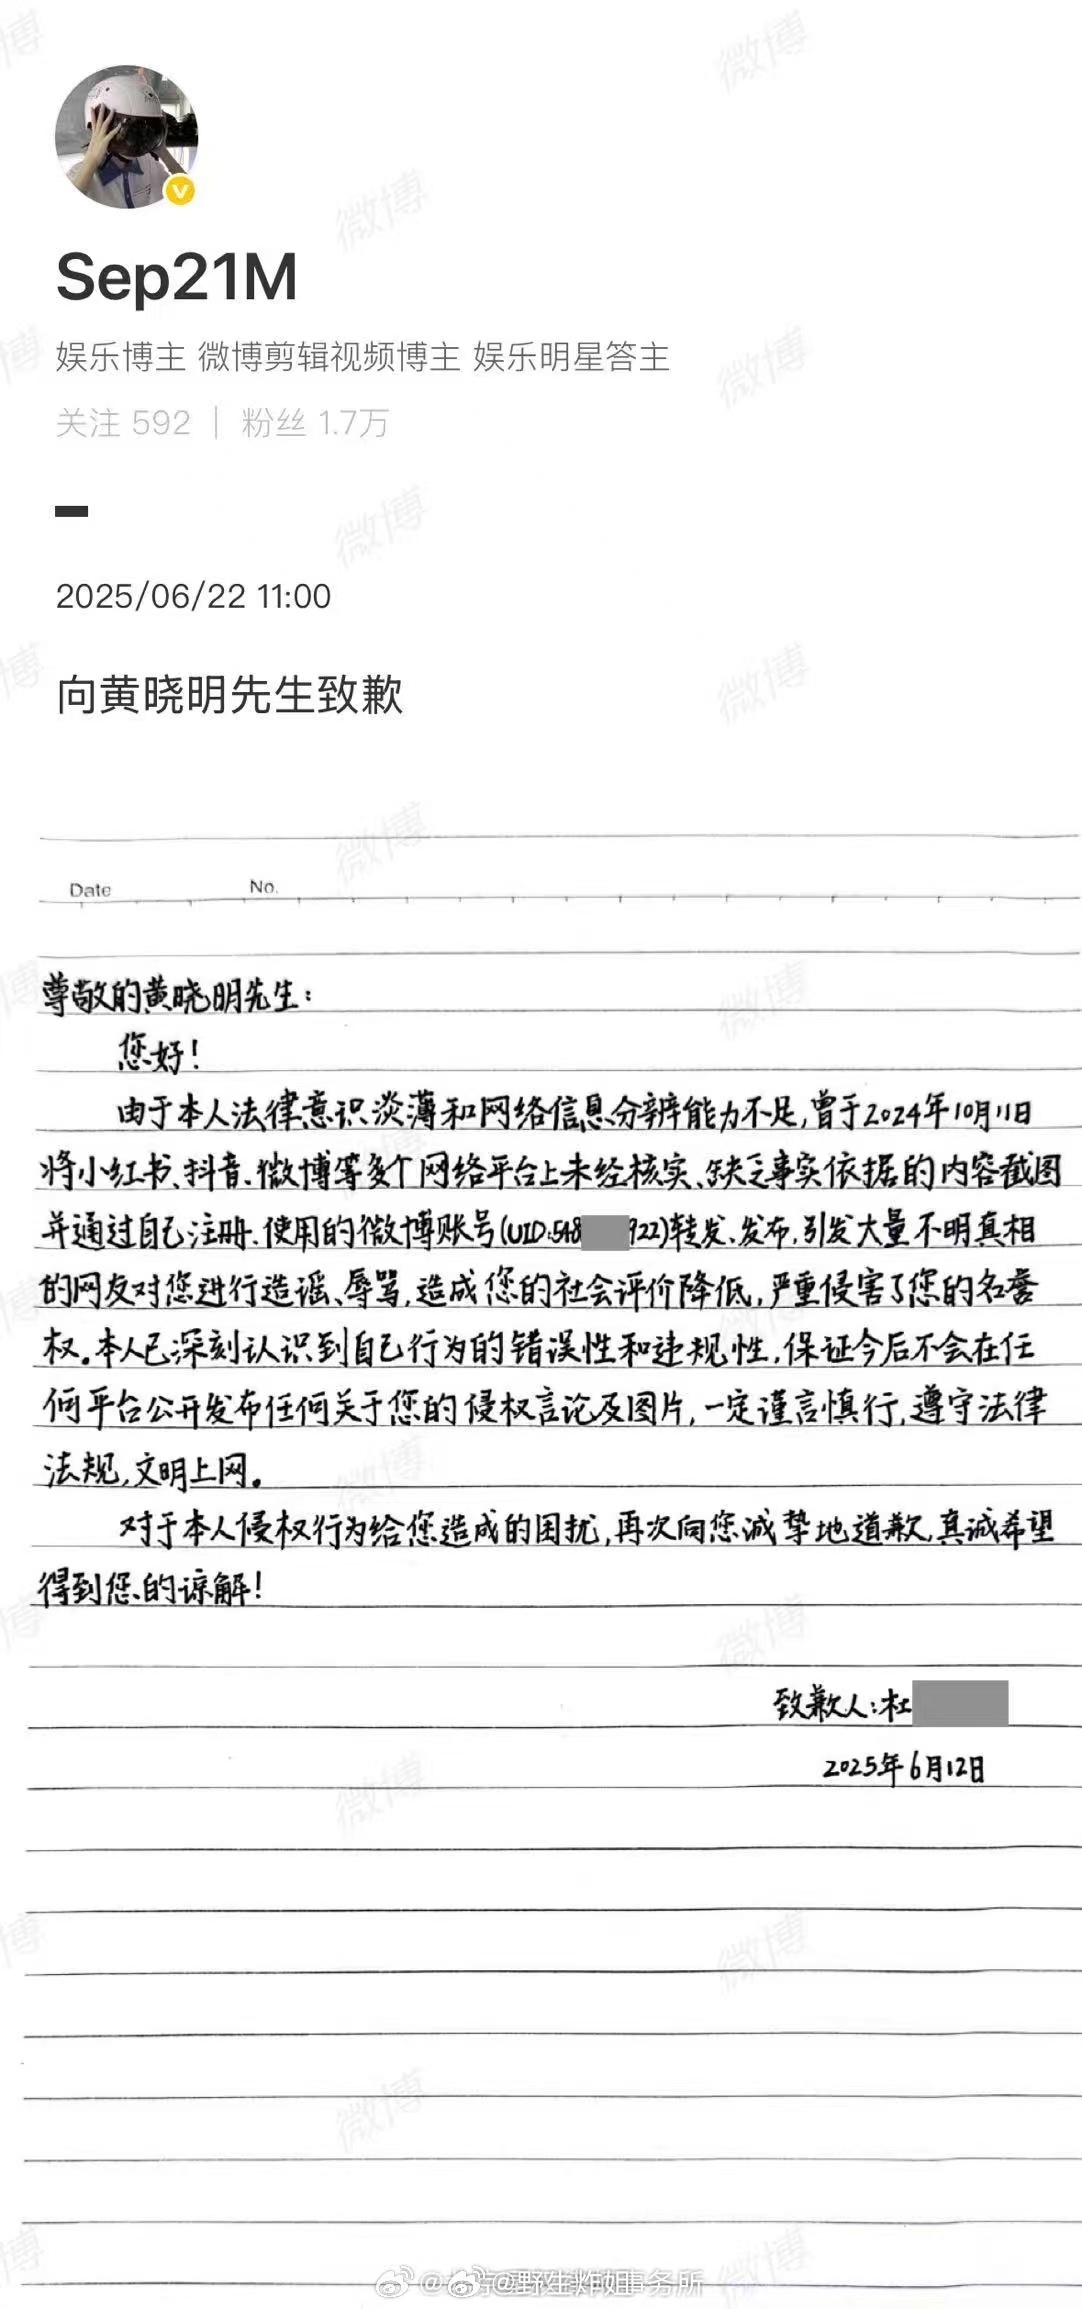 Sep21M
娱乐博主 微博剪辑视频博主 娱乐明星答主
关注 592 | 粉丝 1.7万
2025/06/22 11:00
向黄晓明先生致歉
Date No.
尊敬的黄晓明先生：
您好！
由于本人法律意识淡薄和网络信息分辨能力不足，曾于2024年10月11日
将小红书、抖音、微博等多个网络平台上未经核实、缺乏事实依据的内容截图
并通过自己注册、使用的微博账号(UID:548 922)转发、发布，引发大量不明真相
的网友对您进行造谣、辱骂，造成您的社会评价降低，严重侵害了您的名誉
权。本人已深刻认识到自己行为的错误性和违规性，保证今后不会在任
何平台公开发布任何关于您的侵权言论及图片，一定谨言慎行，遵守法律
法规，文明上网。
对于本人侵权行为给您造成的困扰，再次向您诚挚地道歉，真诚希望
得到您的谅解！
致歉人：杜
2025年6月12日
@野生炸姐事务所
微博